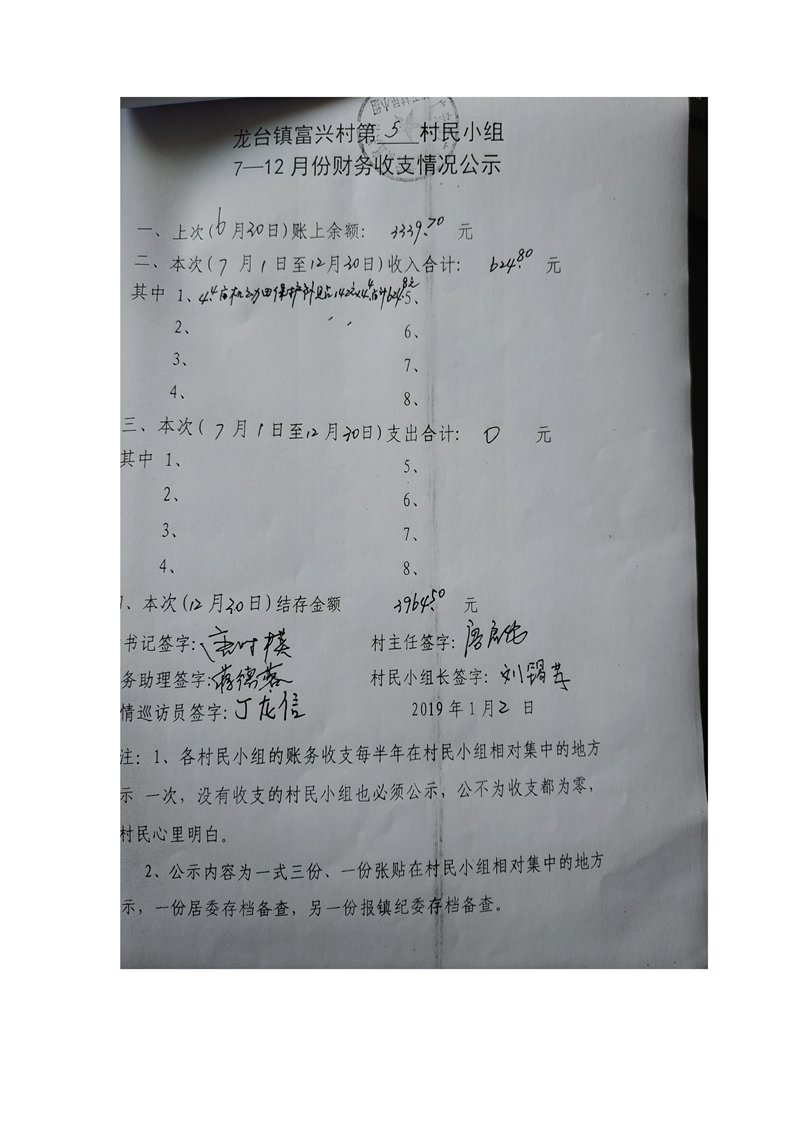 龙台镇富兴村第 5 村民小组
7—12月份财务收支情况公示
一、上次(6月30日)账上余额: 3339.70 元
二、本次(7月1日至12月30日)收入合计: 624.80 元
其中 1、4.4亩机动田保护 142元×4.4亩计624.8元 5、
2、 6、
3、 7、
4、 8、
三、本次(7月1日至12月30日)支出合计: 0 元
其中 1、 5、
2、 6、
3、 7、
4、 8、
、本次(12月30日)结存金额 3964.50 元
书记签字: 村主任签字:
务助理签字:蒋德蓉 村民小组长签字:刘锡
情巡访员签字:丁龙信 2019年1月2日
注: 1、各村民小组的账务收支每半年在村民小组相对集中的地方
示 一次,没有收支的村民小组也必须公示,公不为收支都为零,
村民心里明白。
2、公示内容为一式三份、一份张贴在村民小组相对集中的地方
示,一份居委存档备查,另一份报镇纪委存档备查。